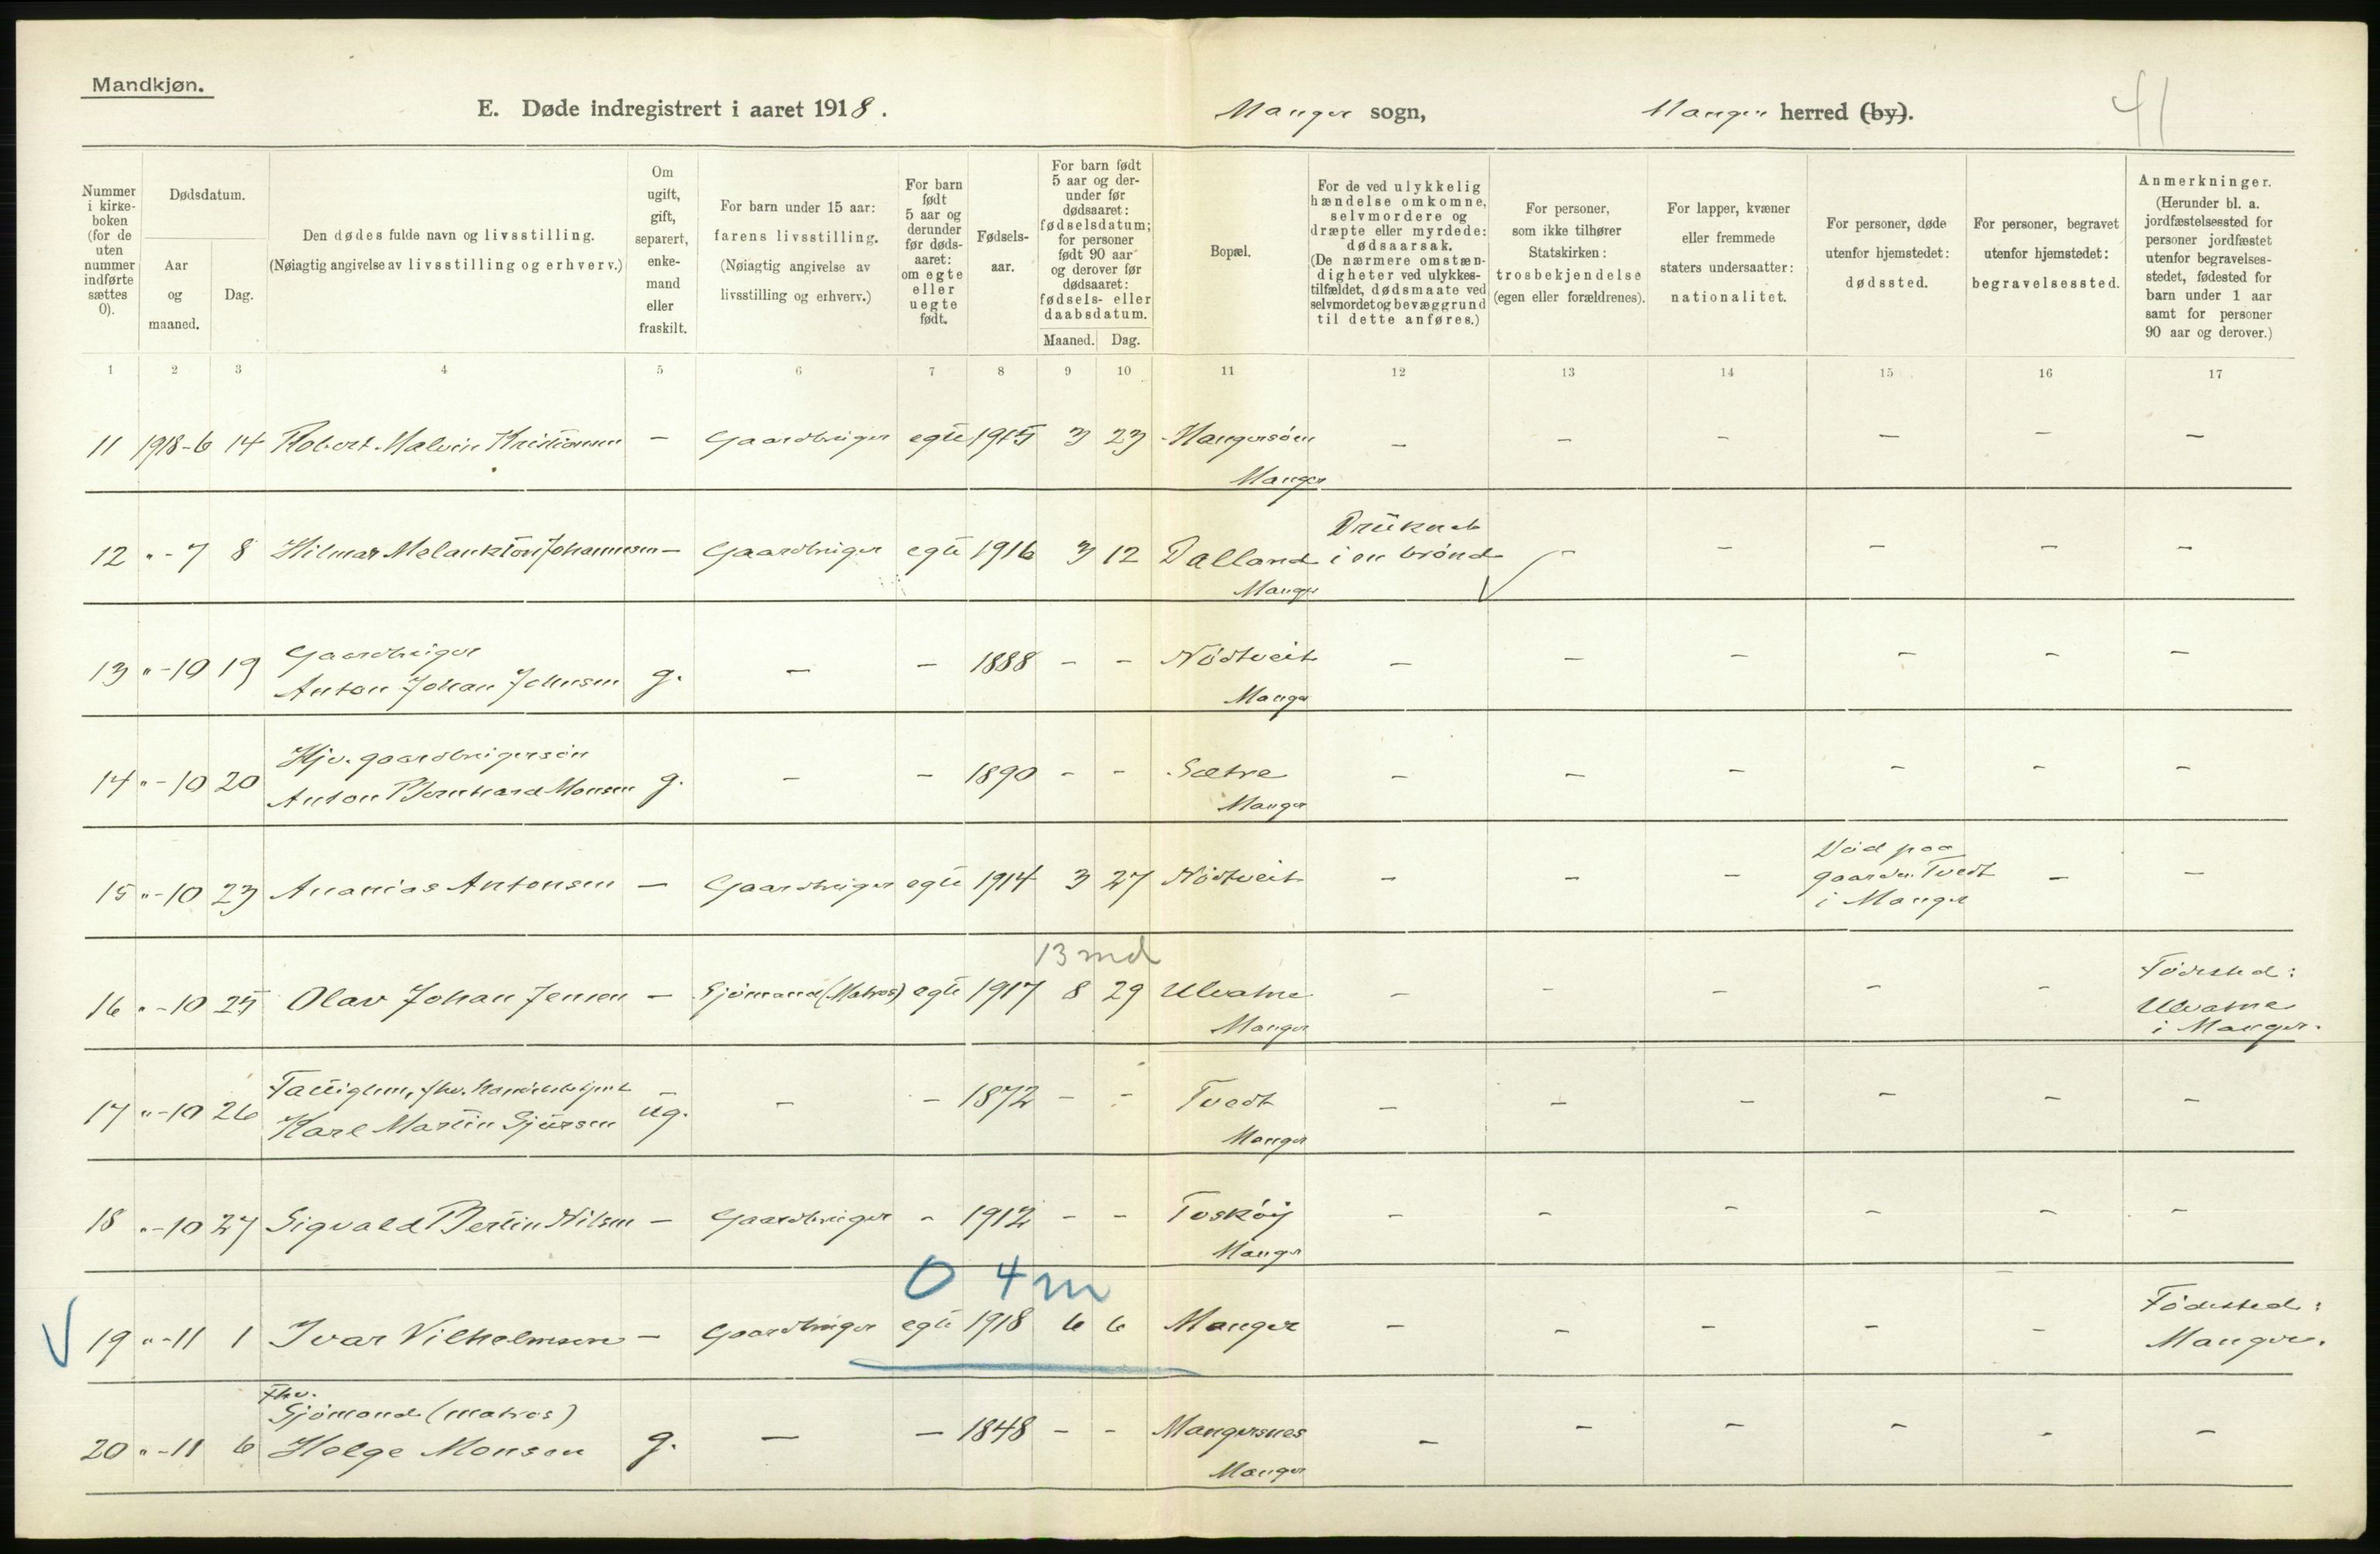 Mandkjøn.
E. Døde indregistrert i aaret 1918.
Manger sogn,
Manger herred (by).
41
Nummer i kirke- boken (for de uten nummer indførte sættes 0).
Dødsdatum.
Aar og maaned.
Dag.
Den dødes fulde navn og livsstilling.
(Nøiagtig angivelse av livsstilling og erhverv.)
Om ugift, gift, separert, enke- mand eller fraskilt.
For barn under 15 aar:
farens livsstilling.
(Nøiagtig angivelse av
livsstilling og erhverv.)
For barn født 5 aar og derunder før døds- aaret: om egte eller uegte født.
Fødsels- aar.
For barn født 5 aar og der- under før dødsaaret: fødselsdatum; for personer født 90 aar og derover før dødsaaret: fødsels- eller daabsdatum.
Maaned. Dag.
Bopæl.
For de ved ulykkelig hændelse omkomne, selvmordere og dræpte eller myrdede: dødsaarsak.
(De nærmere omstæn- digheter ved ulykkes- tilfældet, dødsmaate ved selvmordet og bevæggrund til dette anføres.)
For personer, som ikke tilhører Statskirken: trosbekjendelse (egen eller forældrenes).
For lapper, kvæner eller fremmede staters undersaatter: nationalitet.
For personer, døde utenfor hjemstedet: dødssted.
For personer, begravet utenfor hjemstedet: begravelsessted.
Anmerkninger.
(Herunder bl. a. jordfæstelsessted for personer jordfæstet utenfor begravelses- stedet, fødested for barn under 1 aar samt for personer 90 aar og derover.)
1 2 3 4 5 6 7 8 9 10 11 12 13 14 15 16 17
11 1918-6 14 Robert Malvin Kristiansen - Gaardbruger egte 1915 3 23 - - - - - -
Manger
Druknet
12 " - 7 8 Hilmar Melankton Johannesen - Gaardbruger egte 1916 3 12 Dalland i en brönd - - - - -
Manger
Gaardbruger
13 " - 10 19 Anton Johan Johnsen g. - - 1888 - - Nödtveit - - - - - -
Manger
gaardbrugersön
14 " - 10 20 Anton Bernhard Monsen g. - - 1890 - - Sætre - - - - - -
Manger
Död paa
15 " - 10 23 Ananias Antonsen - Gaardbruger egte 1914 3 27 Nödtveit - - - gaarden Tvedt - -
i Manger
13 md
Födested:
16 " - 10 25 Olav Johan Jensen - Sjömand (Matros) egte 1917 8 29 Ulvatne - - - - - Ulvatne
Manger
i Manger.
17 " - 10 26 Karl Martin Sjursen ug. - - 1872 - - Tvedt - - - - - -
Manger
18 " - 10 27 Sigvald Bertin Nilsen - Gaardbruger - 1912 - - Tosköy - - - - - -
Manger
0 4m
Födested:
19 " - 11 1 Ivar Vilhelmsen - Gaardbruger egte 1918 6 6 Manger - - - - - Manger.
Fhv.
Sjömand (matros)
20 " - 11 6 Helge Monsen g. - - 1848 - - Mangersnes - - - - - -
Manger